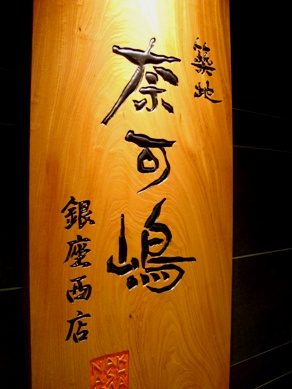 築地
奈可嶋
銀座西店